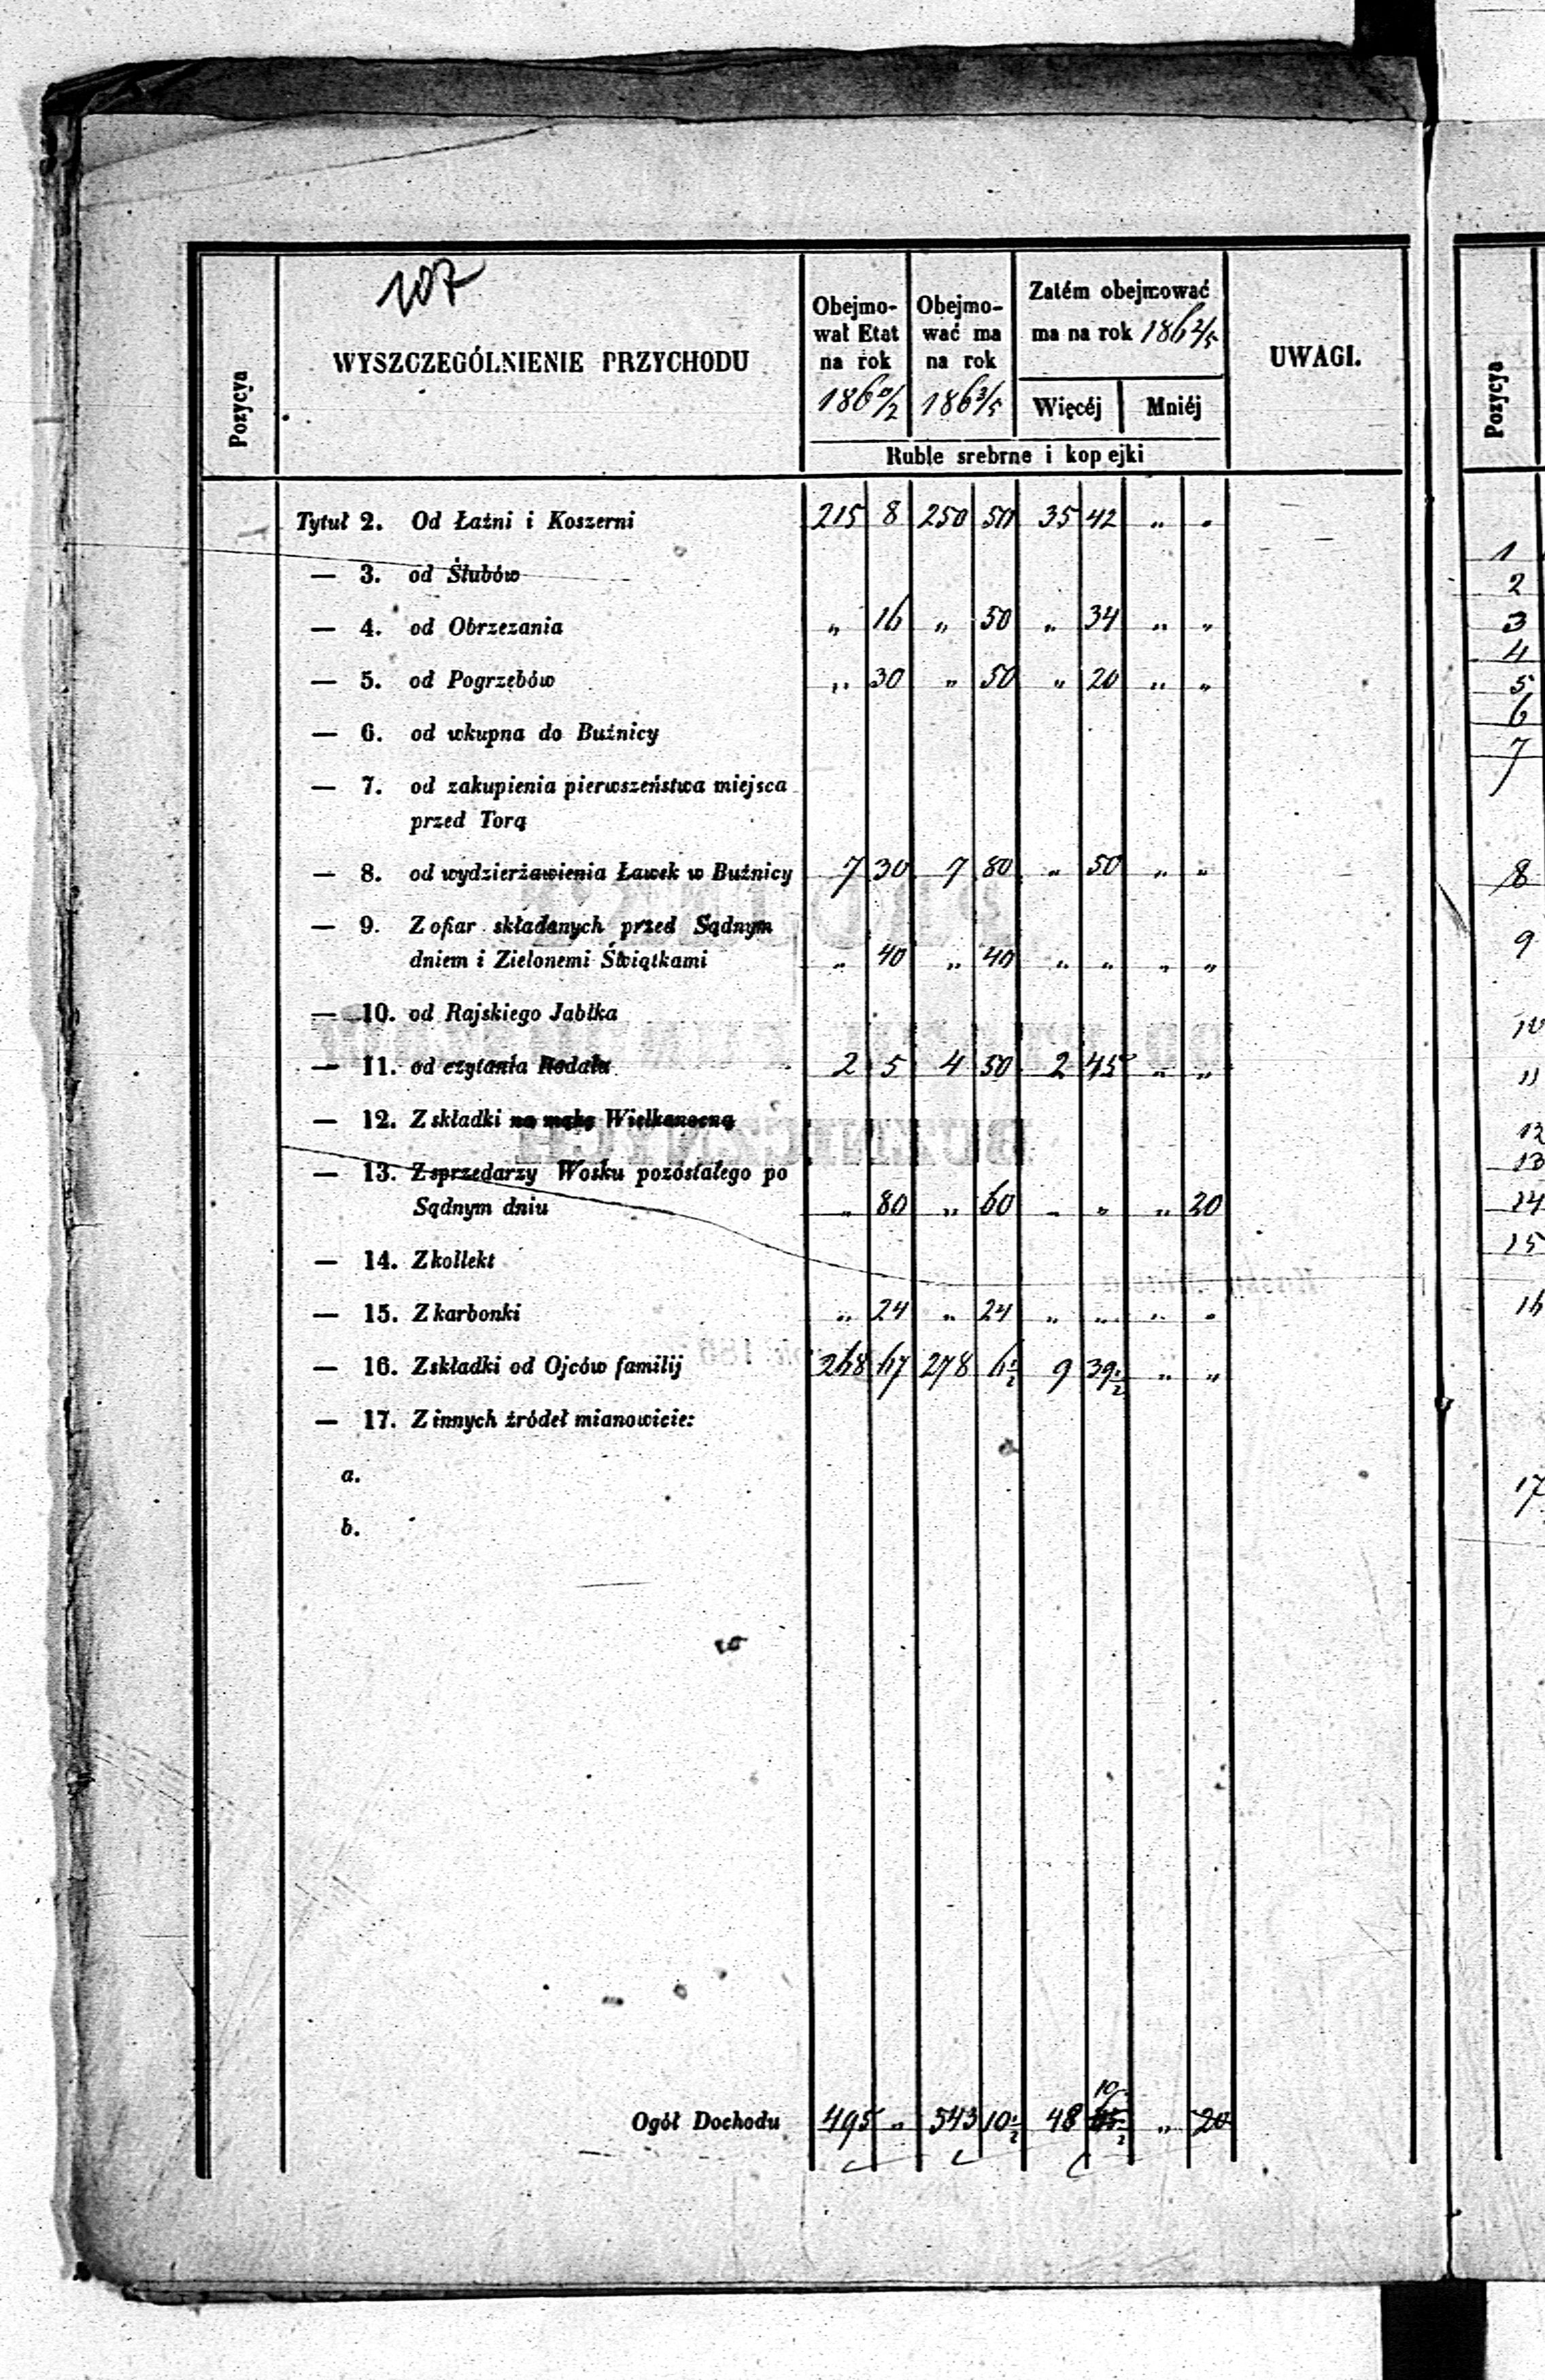 107
Pozycya
WYSZCZEGÓLNIENIE PRZYCHODU
Obejmo-
wał Etat
na rok
186 0/2
Obejmo-
wać ma
na rok
186 3/5
Zatém obejmować
ma na rok 186 3/5
Więcéj Mniéj
Ruble srebrne i kopejki
UWAGI.
Pozycya
Tytuł 2. Od Łaźni i Koszerni 215 8 250 50 35 42 „ „
— 3. od Ślubów
— 4. od Obrzezania „ 16 „ 50 „ 34 „ „
— 5. od Pogrzebów „ 30 „ 50 „ 20 „ „
— 6. od wkupna do Buźnicy
— 7. od zakupienia pierwszeństwa miejsca
przed Torą
— 8. od wydzierżawienia Ławek w Buźnicy 7 30 7 80 „ 50 „ „
— 9. Z ofiar składanych przed Sądnym
dniem i Zielonemi Świątkami „ 40 „ 40 „ „ „ „
— 10. od Rajskiego Jabłka
— 11. od czytania Rodału 2 5 4 50 2 45 „ „
— 12. Z składki na mąkę Wielkanocną
— 13. Z sprzedarzy Wosku pozostałego po
Sądnym dniu „ 80 „ 60 „ „ „ 20
— 14. Z kollekt
— 15. Z karbonki „ 24 „ 24 „ „ „ „
— 16. Z składki od Ojców familij 268 67 278 6½ 9 39½ „ „
— 17. Z innych źródeł mianowicie:
a.
b.
10
Ogół Dochodu 495 „ 543 10½ 48 ½ „ 20
1
2
3
4
5
6
7
8
9
10
11
12
13
14
15
16
17